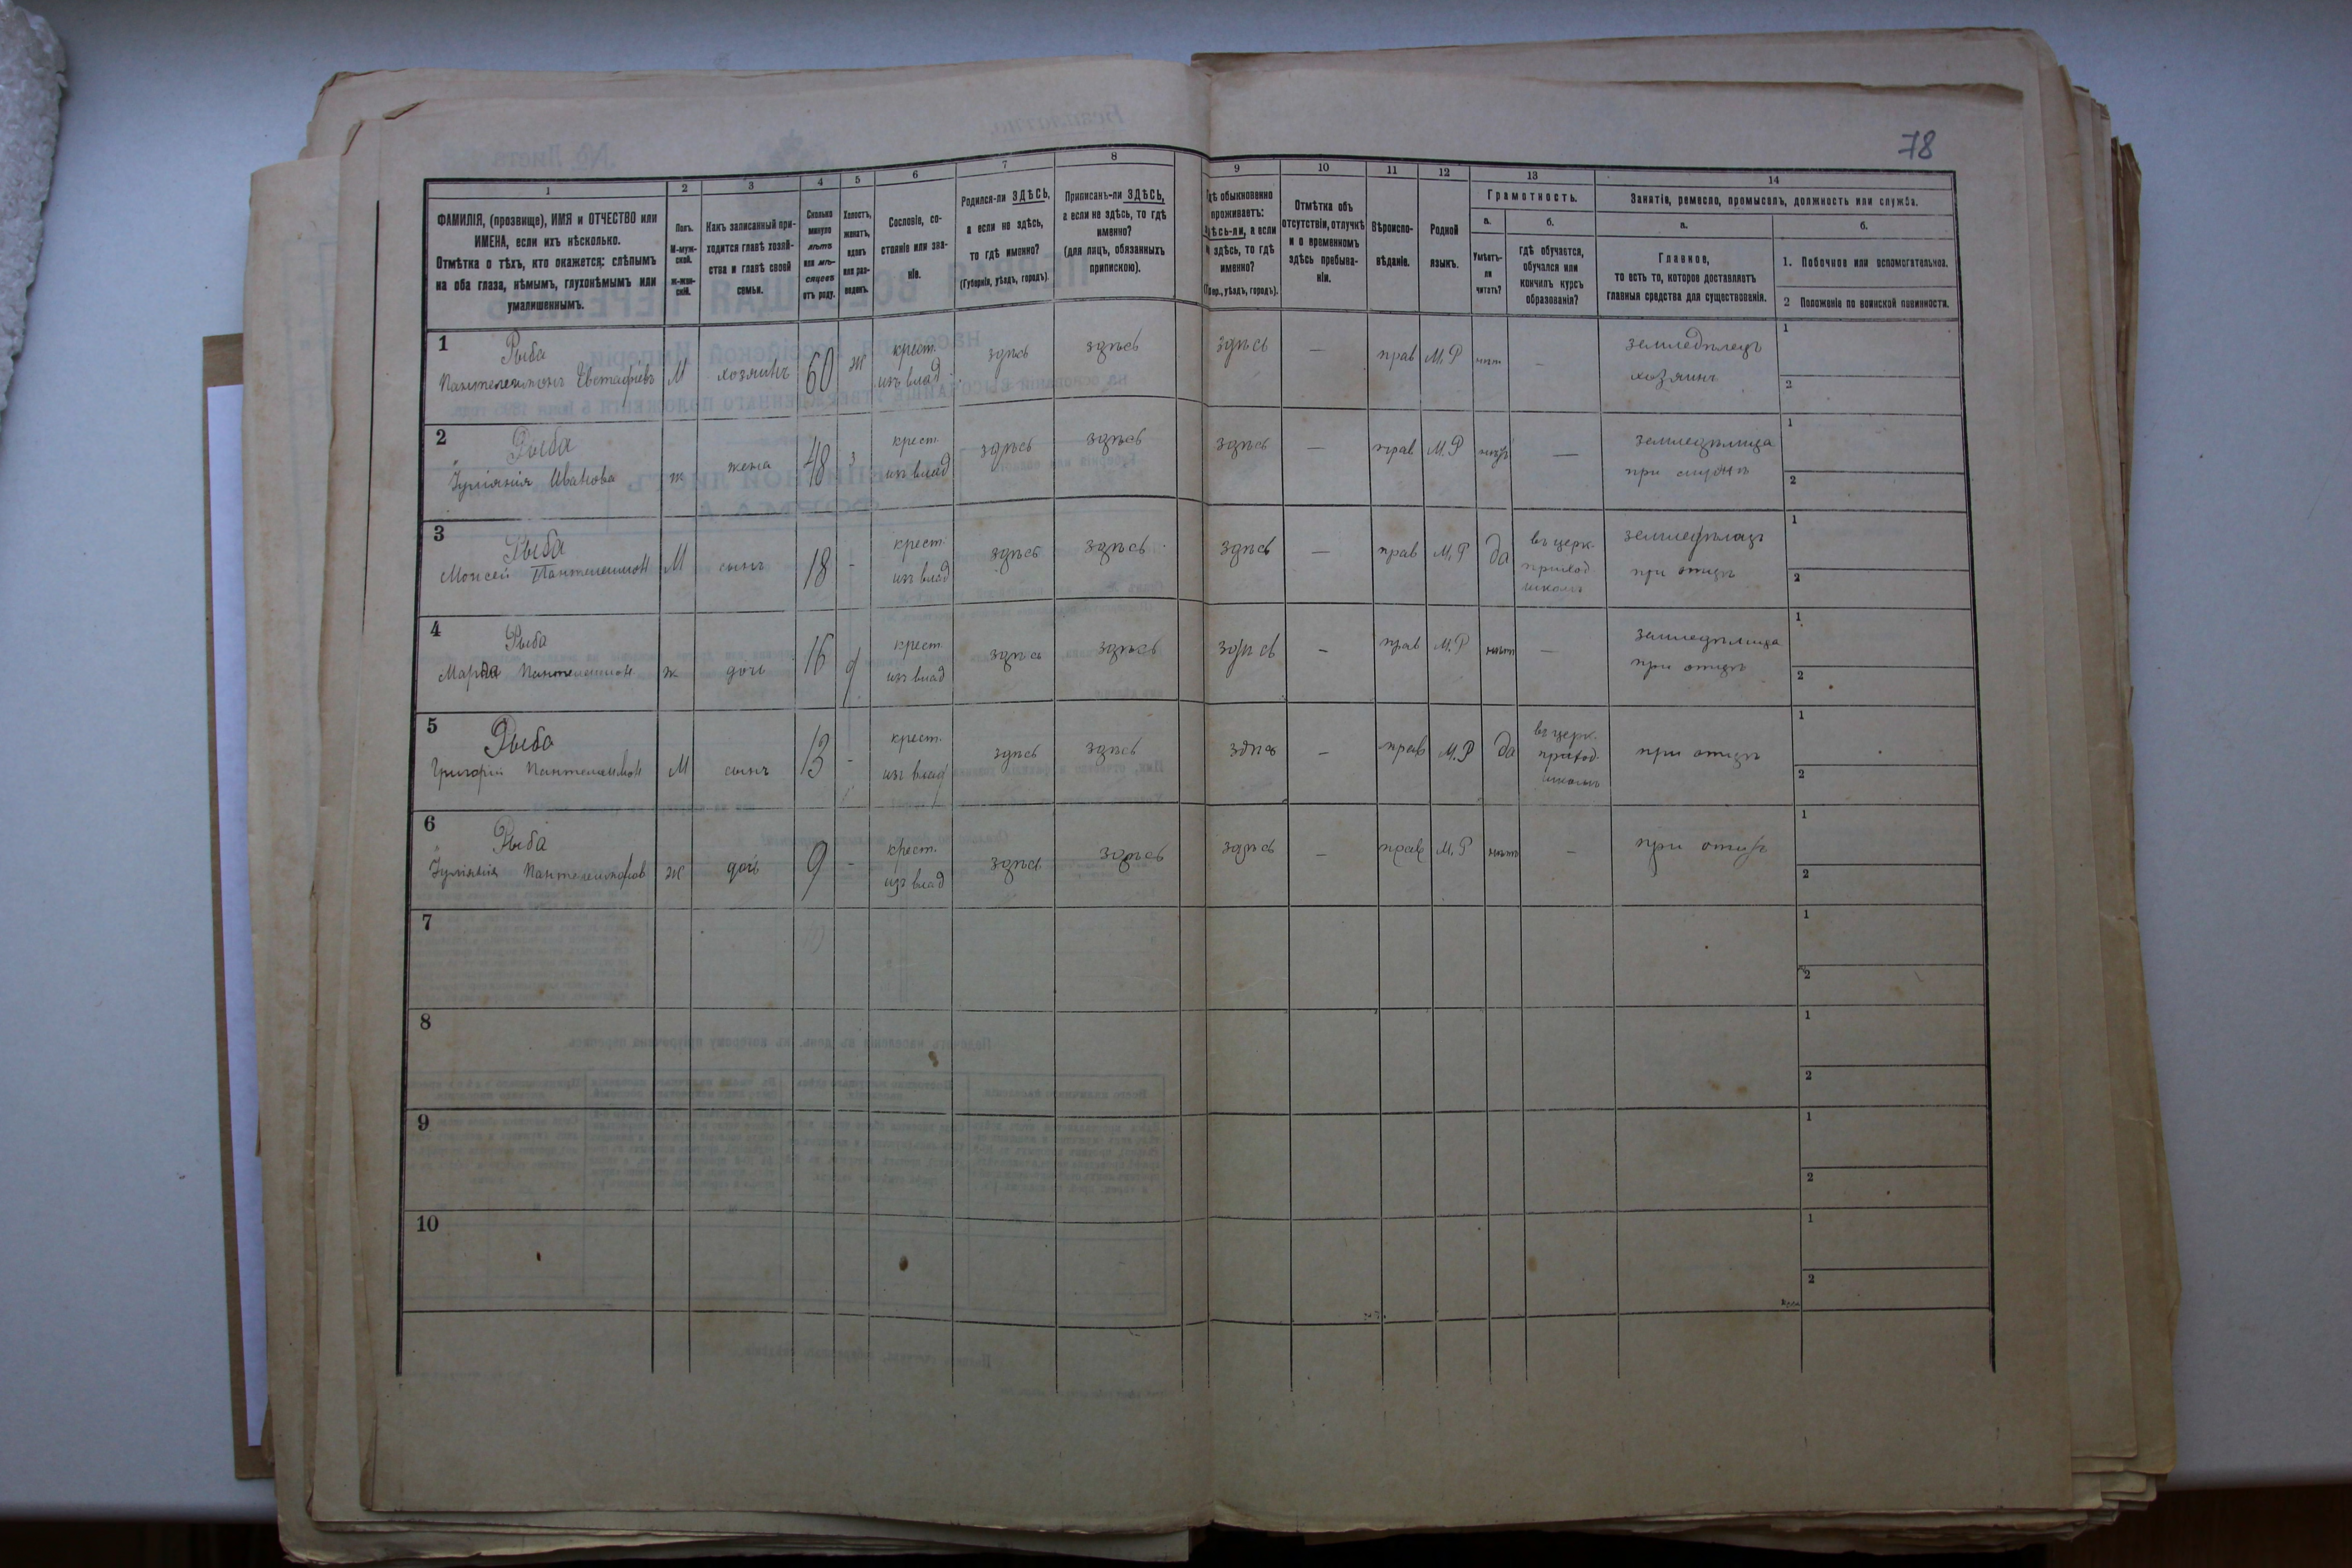 78
1 2 3 4 5 6 7 8 9 10 11 12 13 14
ФАМИЛІЯ, (прозвище), ИМЯ и ОТЧЕСТВО или
ИМЕНА, если ихъ нѣсколько.
Отмѣтка о тѣхъ, кто окажется: слѣпымъ
на оба глаза, нѣмымъ, глухонѣмымъ или
умалишеннымъ.
Полъ.
М-муж-
ской.
Ж-жен-
скій.
Какъ записанный при-
ходится главѣ хозяй-
ства и главѣ своей
семьи.
Сколько
минуло
лѣтъ
или мѣ-
сяцевъ
отъ роду.
Холостъ,
женатъ,
вдовъ
или раз-
веденъ.
Сословіе, со-
стояніе или зва-
ніе.
Родился-ли ЗДѢСЬ,
а если не здѣсь,
то гдѣ именно?
(Губернія, уѣздъ, городъ).
Приписанъ-ли ЗДѢСЬ,
а если не здѣсь, то гдѣ
именно?
(для лицъ, обязанныхъ
припискою).
Гдѣ обыкновенно
проживаетъ:
здѣсь-ли, а если
не здѣсь, то гдѣ
именно?
(Губер., уѣздъ, городъ).
Отмѣтка объ
отсутствіи, отлучкѣ
и о временномъ
здѣсь пребыва-
ніи.
Вѣроиспо-
вѣданіе.
Родной
языкъ.
Грамотность.
а.
Умѣетъ-
ли
читать?
б.
гдѣ обучается,
обучался или
кончилъ курсъ
образованія?
Занятіе, ремесло, промыселъ, должность или служба.
а.
Главное,
то есть то, которое доставляетъ
главныя средства для существованія.
б.
1. Побочное или вспомогательное.
2 Положеніе по воинской повинности.
1 Рыба
Пантелеимонъ Евстафіевъ М хозяинъ 60 ж крест. изъ влад здѣсь здѣсь здѣсь — прав М.Р нѣт — земледѣлецъ
хозяинъ
1
2
2 Рыба
Іуліянія Иванова ж жена 48 з крест. изъ влад здѣсь здѣсь здѣсь — прав М.Р нѣтъ — земледѣлица
при
1
2
3 Рыба
Моисей Пантелеимон М сынъ 18 - крест. изъ влад здѣсь здѣсь здѣсь — прав М.Р да въ церк. приход школѣ земледѣлецъ
при отцѣ
1
2
4 Рыба
Пантелеимон ж дочь 16 д крест. изъ влад здѣсь здѣсь здѣсь — прав М.Р нѣт — земледѣлица
при отцѣ
1
2
5 Рыба
Григорій Пантелеимон М сынъ 13 - крест. изъ влад здѣсь здѣсь здѣсь — прав М.Р да въ церк. приход. школѣ при отцѣ
1
2
6 Рыба
Іуліянія Пантелеимонов ж дочь 9 - крест. изъ влад здѣсь здѣсь здѣсь — прав М.Р нѣтъ — при отцѣ
1
2
7
1
2
8
1
2
9
1
2
10
1
2